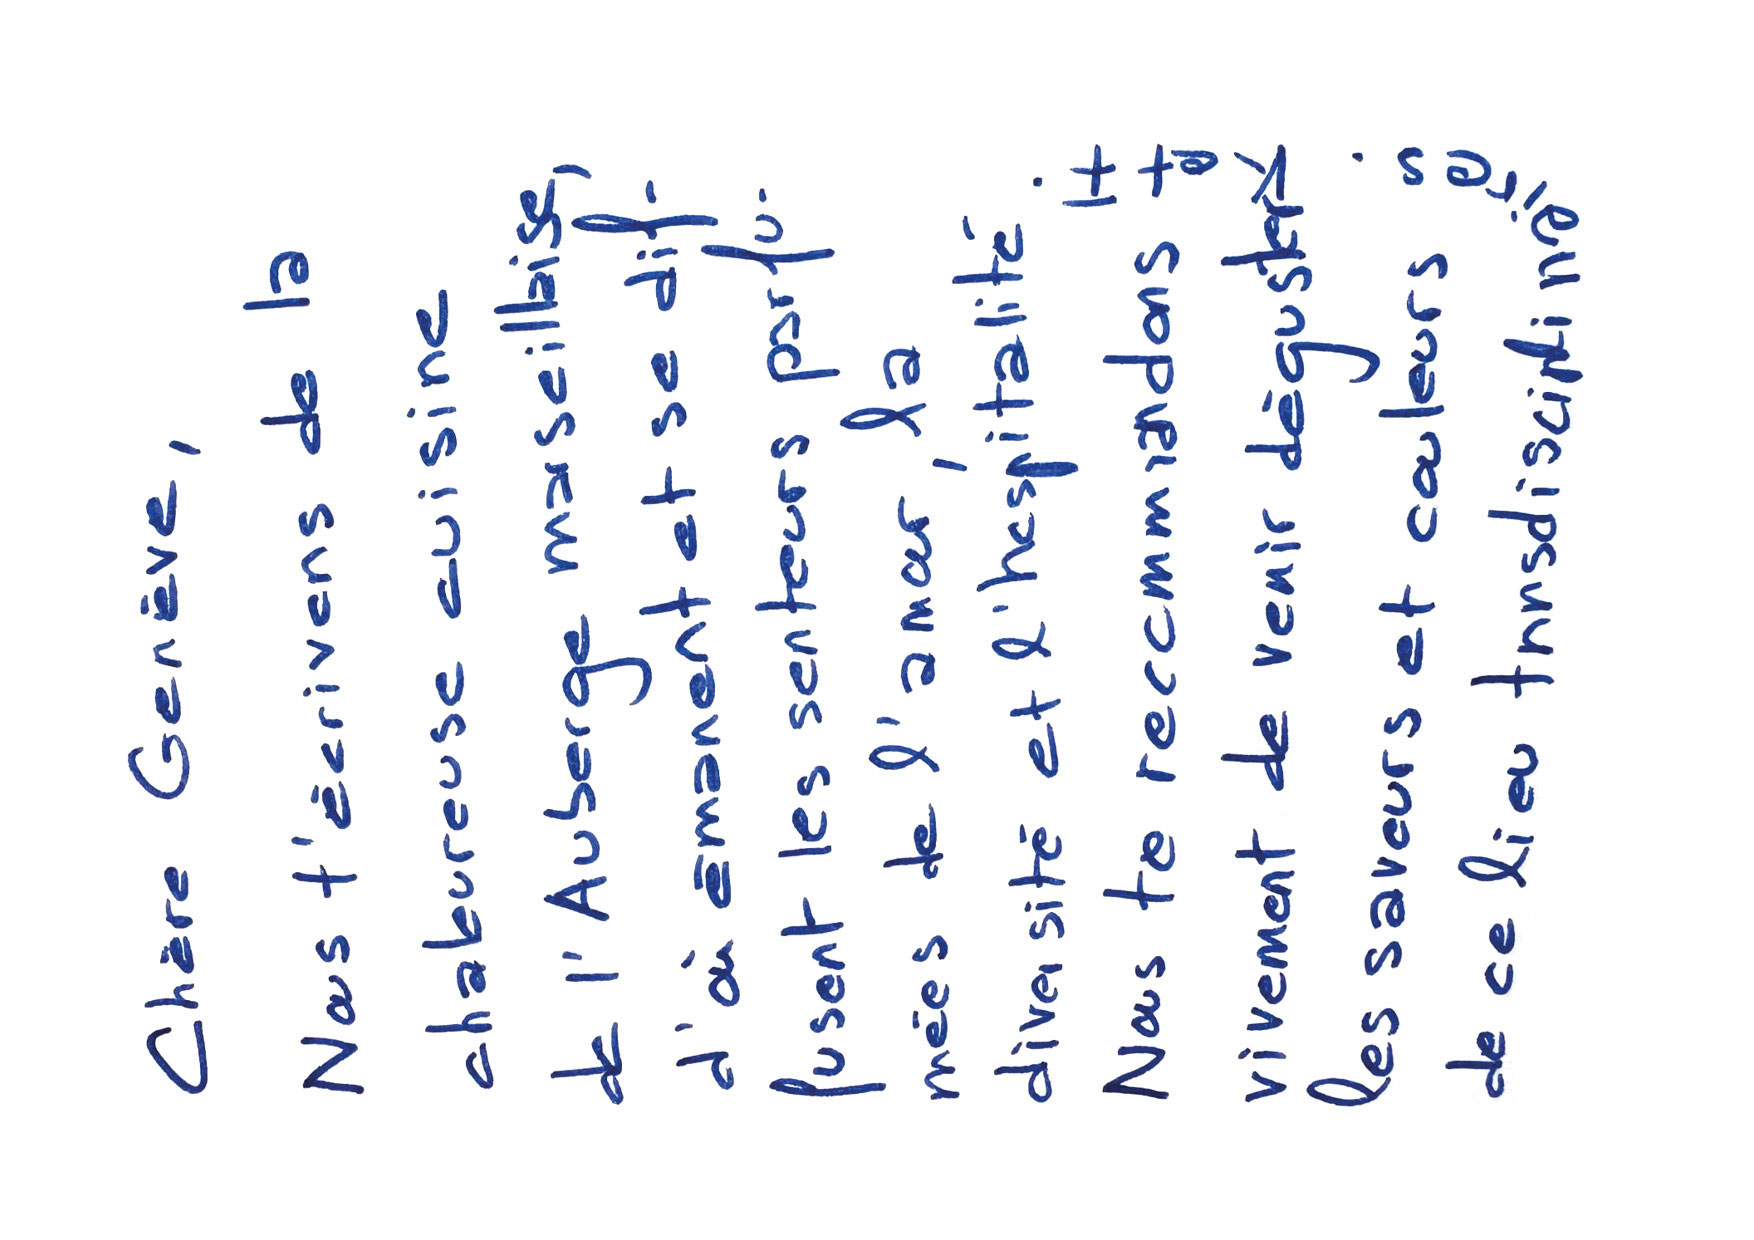 Chère Genève,
Nous t'écrivons de la
chaleureuse cuisine
de l'Auberge marseillaise,
d'où émanent et se dif-
fusent les senteurs parfu-
mées de l'amour, la
diversité et l'hospitalité.
Nous te recommandons
vivement de venir déguster
les saveurs et couleurs
de ce lieu transdisciplinaires.